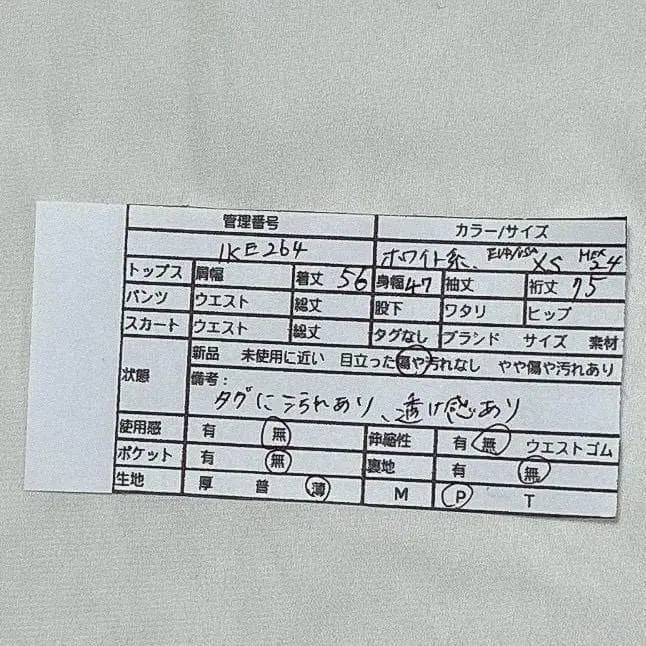 管理番号 カラー/サイズ
IKE264 ホワイト系、EUR/USA XS MEX 24
トップス 肩幅 着丈 56 身幅 47 袖丈 裄丈 75
パンツ ウエスト 総丈 股下 ワタリ ヒップ
スカート ウエスト 総丈 タグなし ブランド サイズ 素材
状態 新品 未使用に近い 目立った傷や汚れなし やや傷や汚れあり
備考:
タグに汚れあり、透け感あり
使用感 有 無 伸縮性 有 無 ウエストゴム
ポケット 有 無 裏地 有 無
生地 厚 普 薄 M P T